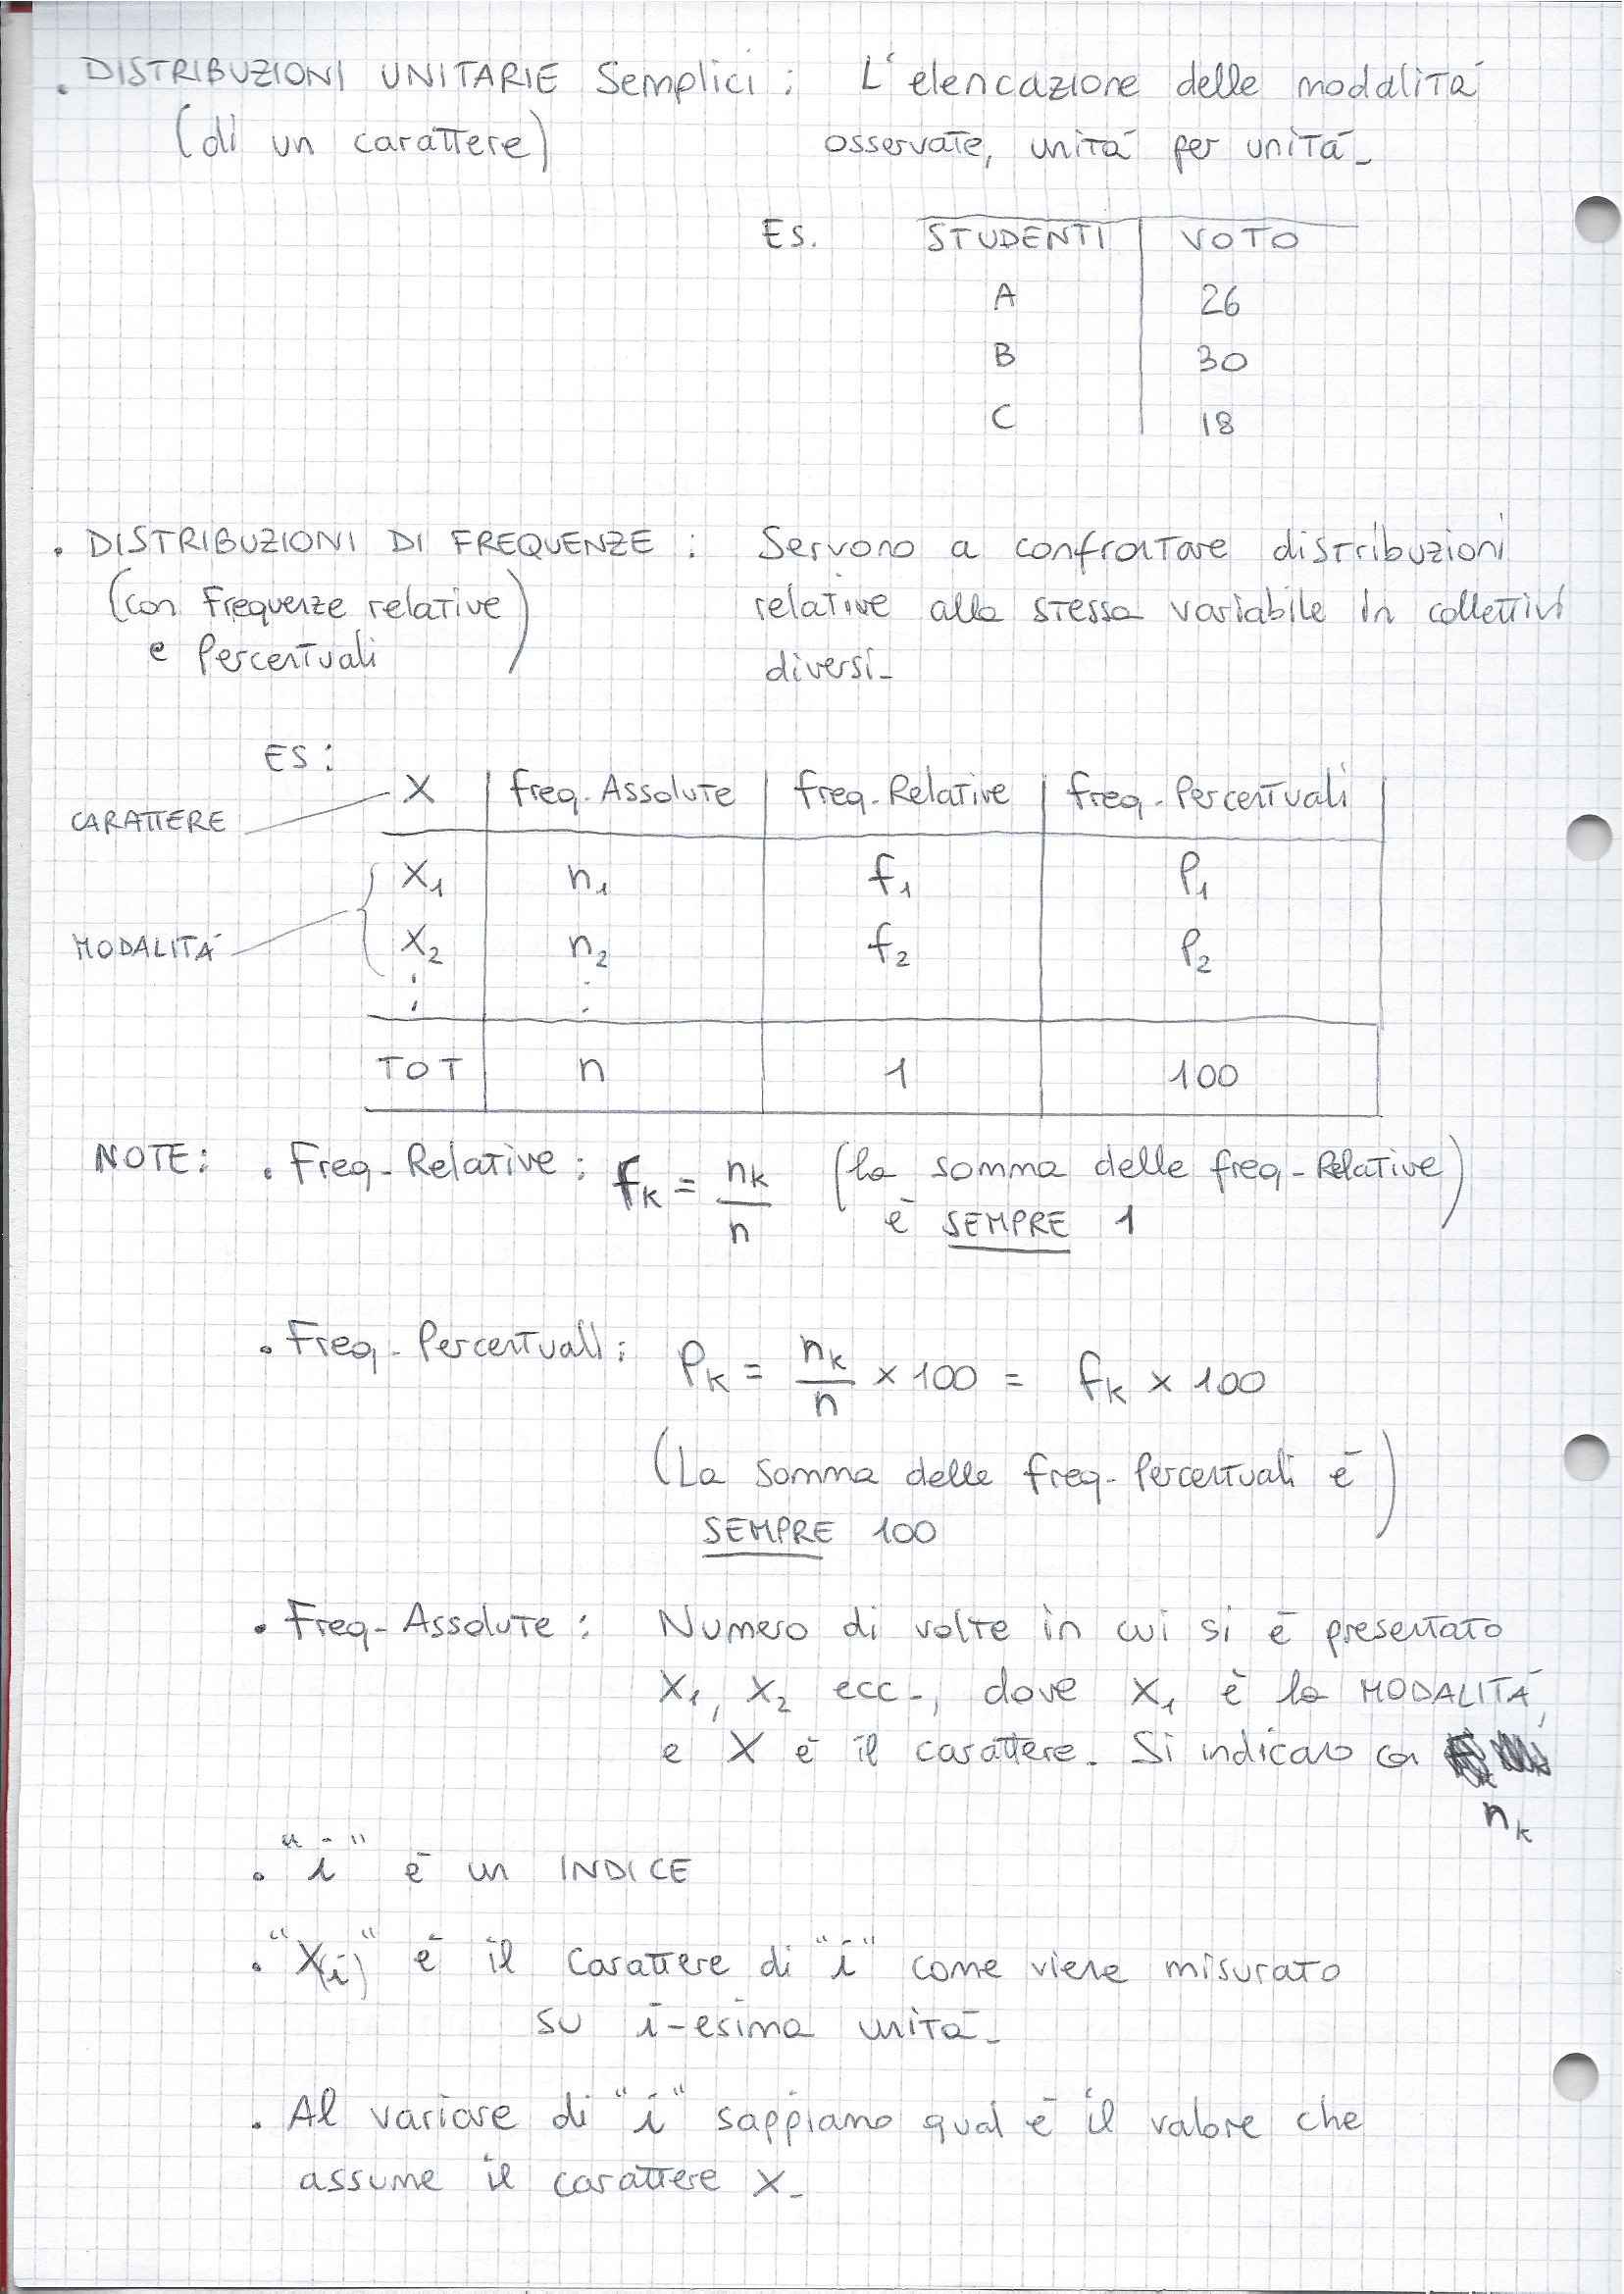 . DISTRIBUZIONI UNITARIE Semplici : L'elencazione delle modalità
(di un carattere) osservate, unità per unità_
Es. STUDENTI VOTO
A 26
B 30
C 18
. DISTRIBUZIONI DI FREQUENZE : Servono a confrontare distribuzioni
(con Frequenze relative relative alla stessa variabile in collettivi
e Percentuali) diversi_
ES:
X freq. Assolute freq. Relative freq. Percentuali
CARATTERE
X1 n1 f1 P1
MODALITÀ X2 n2 f2 P2
: :
TOT n 1 100
NOTE: . Freq. Relative : fk = nk/n (la somma delle freq. Relative)
è SEMPRE 1
. Freq. Percentuali : Pk = nk/n × 100 = fk × 100
(La somma delle freq. Percentuali è)
SEMPRE 100
. Freq. Assolute : Numero di volte in cui si è presentato
X1, X2 ecc., dove X1 è la MODALITÀ,
e X è il carattere. Si indicano con
nk
. "i" è un INDICE
. "X(i)" è il carattere di "i" come viene misurato
su i-esima unità_
. Al variare di "i" sappiamo qual è il valore che
assume il carattere X_